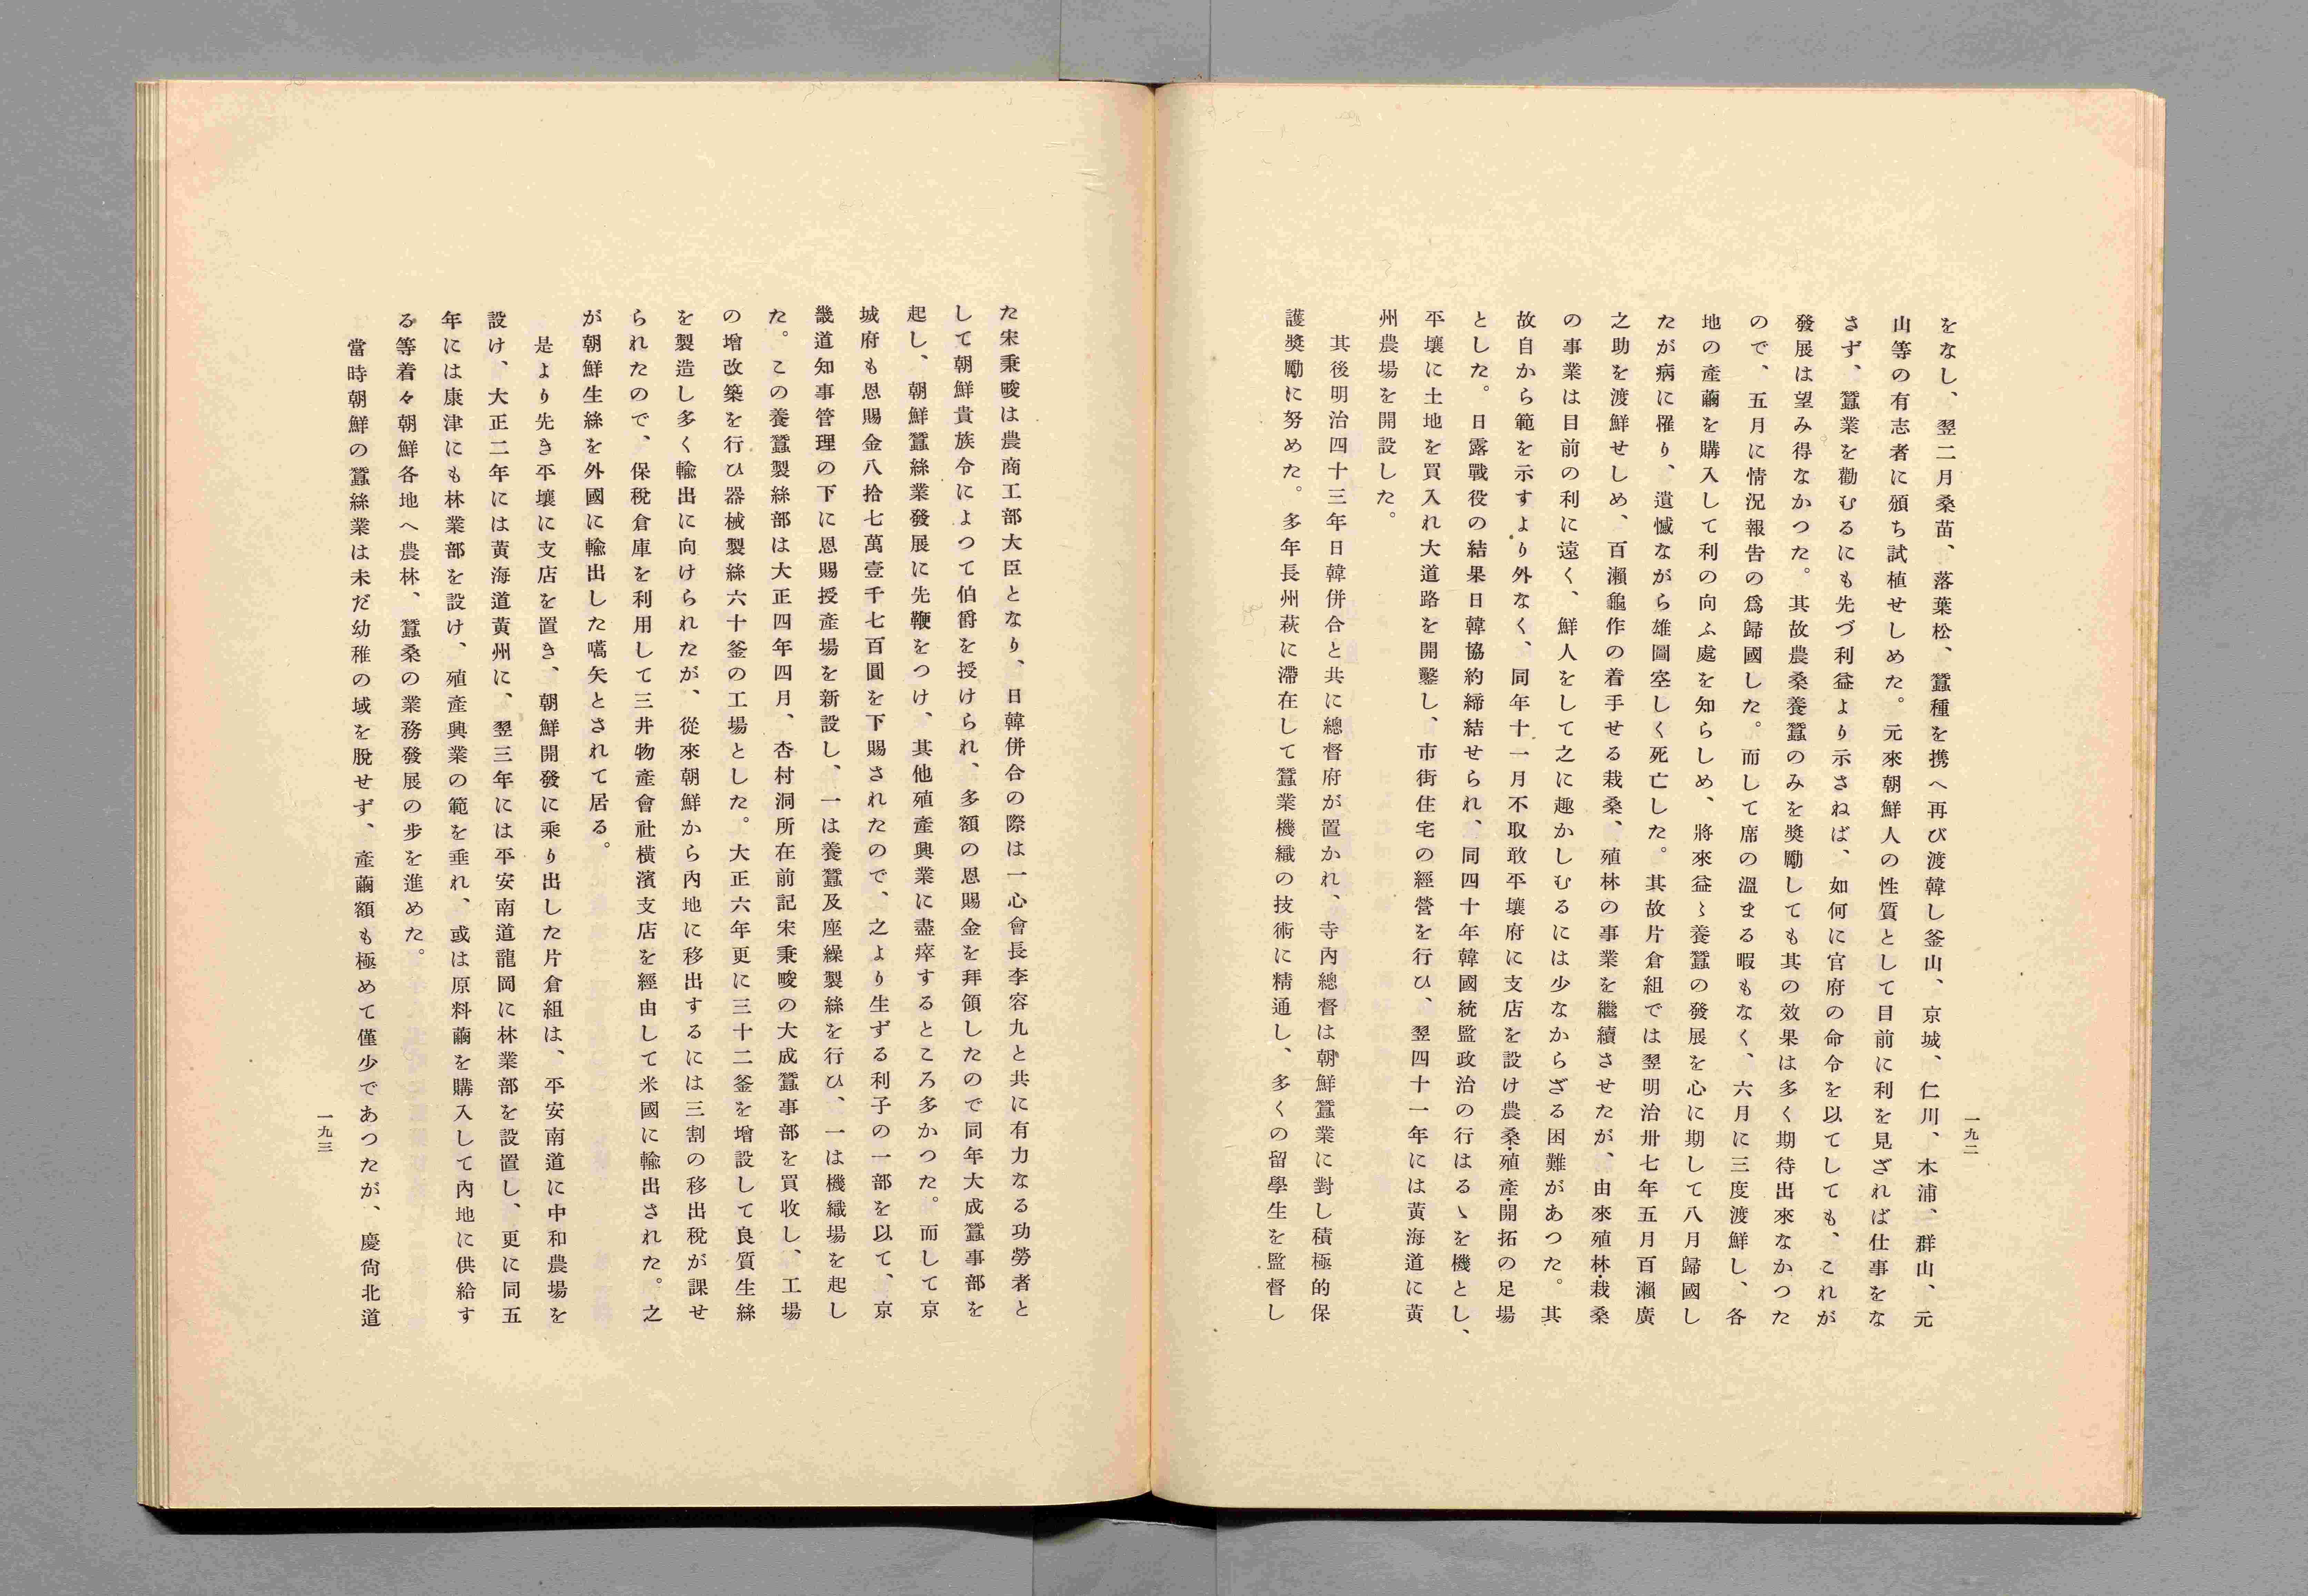 一九二
をなし、翌二月桑苗、落葉松、蠶種を携へ再び渡韓し釜山、京城、仁川、木浦、群山、元
山等の有志者に頒ち試植せしめた。元來朝鮮人の性質として目前に利を見ざれば仕事をな
さず、蠶業を勸むるにも先づ利益より示さねば、如何に官府の命令を以てしても、これが
發展は望み得なかつた。其故農桑養蠶のみを奬勵しても其の效果は多く期待出來なかつた
ので、五月に情況報告の爲歸國した。而して席の溫まる暇もなく、六月に三度渡鮮し、各
地の產繭を購入して利の向ふ處を知らしめ、將來益〻養蠶の發展を心に期して八月歸國し
たが病に罹り、遺憾ながら雄圖空しく死亡した。其故片倉組では翌明治卅七年五月百瀨廣
之助を渡鮮せしめ、百瀨龜作の着手せる栽桑、殖林の事業を繼續させたが、由來殖林・栽桑
の事業は目前の利に遠く、鮮人をして之に趣かしむるには少なからざる困難があつた。其
故自から範を示すより外なく、同年十一月不取敢平壤府に支店を設け農桑・殖產・開拓の足場
とした。日露戰役の結果日韓協約締結せられ、同四十年韓國統監政治の行はるゝを機とし、
平壤に土地を買入れ大道路を開鑿し、市街住宅の經營を行ひ、翌四十一年には黃海道に黃
州農場を開設した。
其後明治四十三年日韓併合と共に總督府が置かれ、寺內總督は朝鮮蠶業に對し積極的保
護奬勵に努めた。多年長州萩に滯在して蠶業機織の技術に精通し、多くの留學生を監督し
た宋秉畯は農商工部大臣となり、日韓併合の際は一心會長李容九と共に有力なる功勞者と
して朝鮮貴族令によつて伯爵を授けられ、多額の恩賜金を拜領したので同年大成蠶事部を
起し、朝鮮蠶絲業發展に先鞭をつけ、其他殖產興業に盡瘁するところ多かつた。而して京
城府も恩賜金八拾七萬壹千七百圓を下賜されたので、之より生ずる利子の一部を以て、京
畿道知事管理の下に恩賜授產場を新設し、一は養蠶及座繰製絲を行ひ、一は機織場を起し
た。この養蠶製絲部は大正四年四月、杏村洞所在前記宋秉畯の大成蠶事部を買收し、工場
の增改築を行ひ器械製絲六十釜の工場とした。大正六年更に三十二釜を增設して良質生絲
を製造し多く輸出に向けられたが、從來朝鮮から內地に移出するには三割の移出稅が課せ
られたので、保稅倉庫を利用して三井物產會社橫濱支店を經由して米國に輸出された。之
が朝鮮生絲を外國に輸出した嚆矢とされて居る。
是より先き平壤に支店を置き、朝鮮開發に乘り出した片倉組は、平安南道に中和農場を
設け、大正二年には黃海道黃州に、翌三年には平安南道龍岡に林業部を設置し、更に同五
年には康津にも林業部を設け、殖產興業の範を垂れ、或は原料繭を購入して內地に供給す
る等着々朝鮮各地へ農林、蠶桑の業務發展の步を進めた。
當時朝鮮の蠶絲業は未だ幼稚の域を脫せず、產繭額も極めて僅少であつたが、慶尙北道
一九三